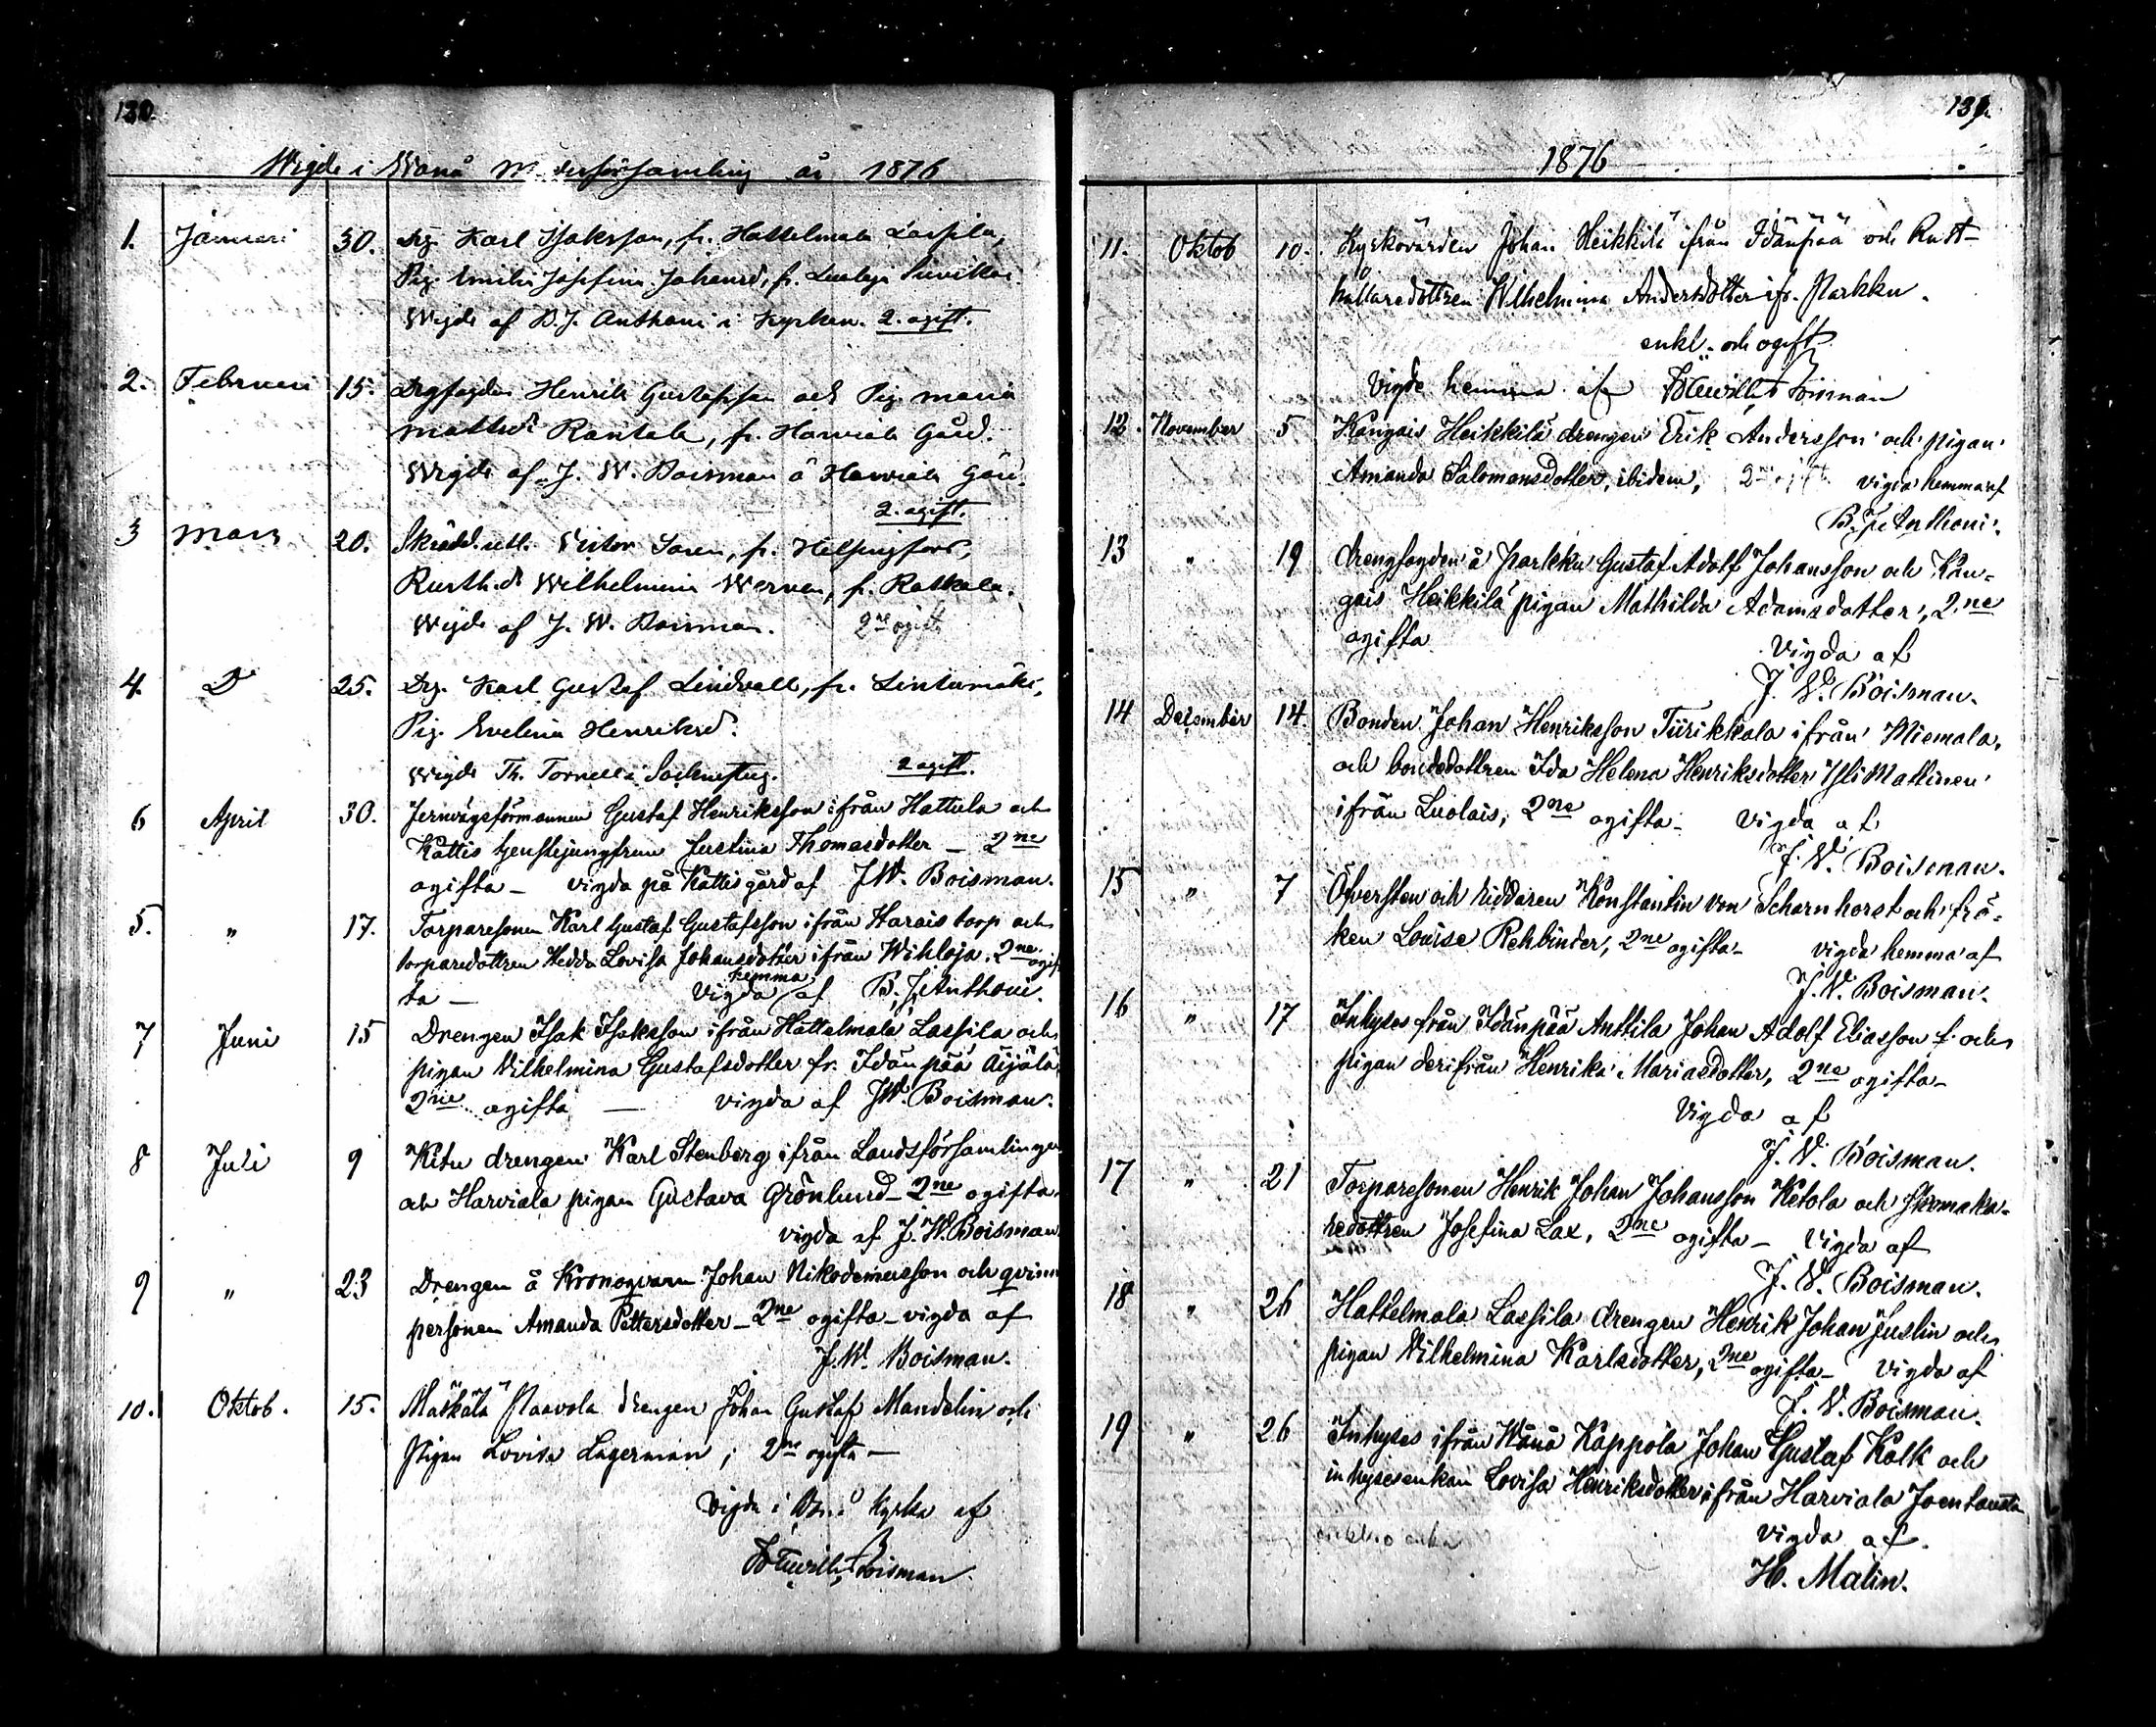 130.
Wigde i Wånå Moderförsamling år 1876
1. Januari 30. Drg. Karl Isaksson, fr. Hattelmala Lassila,
Pig. Emilia Josefina Johansd., fr. Luolaja
Wigde af B. J. Anthoni i Kyrkan. 2. ogift.
2. Februari 15. Drgfogden Henrik Gustafsson och Pig. Maria
Mattsd. Rantala, fr. Harviala Gård.
Wigde af J. W. Boisman å Harviala Gård.
2. ogift.
3 Mars 20. Skrädd. Victor, fr. Helsingfors,
Rusth.d. Wilhelmina, fr. Katkala.
Wigde af J. W. Boisman. 2ne ogifte
4. D 25. Drg. Karl Gustaf Lindvall, fr. Lintumäki,
Pig. Evelina Henriksd.
Wigde Th. Tornell i Sockenstug. 2 ogift.
6 April 30. Jernvägsförmannen Gustaf Henriksson ifrån Hattula och
Kattis tjenstejungfrun Justina Thomasdotter — 2ne
ogifta — vigda på Kattis gård af J.W. Boisman.
5. " 17. Torparesonen Karl Gustaf Gustafsson ifrån Harais torp och
torparedottren Hedda Lovisa Johansdotter ifrån Wihloja. 2ne ogif
hemma
ta — vigda af B. J. Anthoni.
7 Juni 15 Drengen Isak Isaksson ifrån Hattelmala Lassila och
pigan Vilhelmina Gustafsdotter fr. Idänpää Äijälä,
2ne ogifta — vigda af J.W. Boisman.
8 Juli 9 Kitu drengen Karl Stenberg ifrån Landsförsamlingen
och Harviala pigan Gustava Grönlund — 2ne ogifta.
vigda af J. W. Boisman
9 " 23 Drengen å Kronoqvarn Johan Nikodemusson och qvinns
personen Amanda Pettersdotter — 2ne ogifta — vigda af
J. W. Boisman.
10. Oktob. 15. Mäskälä Paavola drengen Johan Gustaf Mandelin och
Pigan Lovisa Lagerman; 2ne ogifta —
Vigda i Kyrka af
Boisman.
139.
1876
11. Oktob 10. Kyrkovärden Johan Heikkilä ifrån Idänpää och Rust-
hållaredottren Wilhelmina Andersdotter ifr. Parkku.
enkl. och ogift
Vigde hemma af Boisman
12. November 5 Kangais Heikkilä drengen Erik Andersson och pigan
Amanda Salomonsdotter, ibidem, 2ne ogifta vigda hemma af
B. J. Anthoni.
13 " 19 Drengfogden å Parkku Gustaf Adolf Johansson och Kan-
gais Heikkilä pigan Mathilda Adamsdotter, 2ne
ogifta
Vigda af
J. W. Boisman.
14 December 14. Bonden Johan Henriksson Tiirikkala ifrån Miemala,
och bondedottren Ida Helena Henriksdotter Yli Mattinen
ifrån Luolais, 2ne ogifta — Vigda af
J. W. Boisman.
15 " 7 Öfversten och riddaren Konstantin von Scharnhorst och frö-
ken Louise Rehbinder, 2ne ogifta — vigda hemma af
J. W. Boisman.
16 " 17 Inhyses från Idänpää Anttila Johan Adolf Eliasson f. och
pigan derifrån Henrika Mariasdotter, 2ne ogifta —
Vigda af
J. W. Boisman.
17 " 21 Torparesonen Henrik Johan Johansson Ketola och Skomaka-
redottren Josefina Lax, 2ne ogifta — Vigda af
J. W. Boisman.
18 " 26 Hattelmala Lassila drengen Henrik Johan Juslin och
pigan Vilhelmina Karlsdotter, 2ne ogifta — Vigda af
J. W. Boisman.
19 " 26 Inhyses ifrån Wånå Kappola Johan Gustaf Kalk och
inhysesenkan Lovisa Henriksdotter ifrån Harviala Joentausta
enkl. o enka Vigda af
H. Malin.